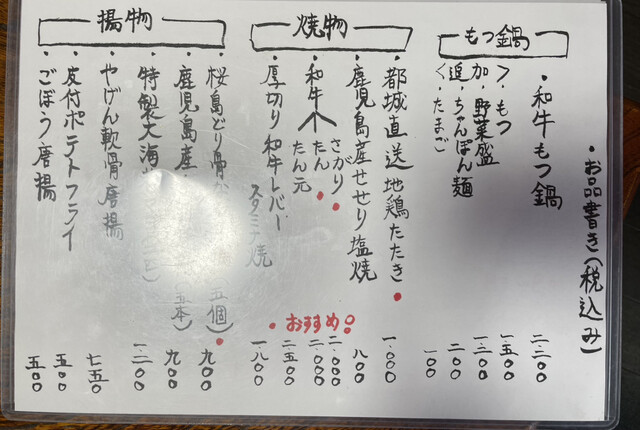 ・お品書き(税込み)
もつ鍋
・和牛もつ鍋 二二〇〇
・もつ 一五〇〇
・野菜盛 一二〇〇
・ちゃんぽん麺 二〇〇
・たまご 一〇〇
追加
焼物
・都城直送地鶏たたき 一、〇〇〇
・鹿児島産せせり塩焼 八〇〇
・和牛
さがり 二、〇〇〇
たん 二、〇〇〇
たん元 二五〇〇
・厚切り和牛レバースタミナ焼 一八〇〇
・おすすめ
揚物
・桜島どり骨 五個) 九〇〇
・鹿児島産 (五本) 九〇〇
・特製大海 一二〇〇
・やげん軟骨唐揚 七五〇
・皮付ポテトフライ 五〇〇
・ごぼう唐揚 五〇〇